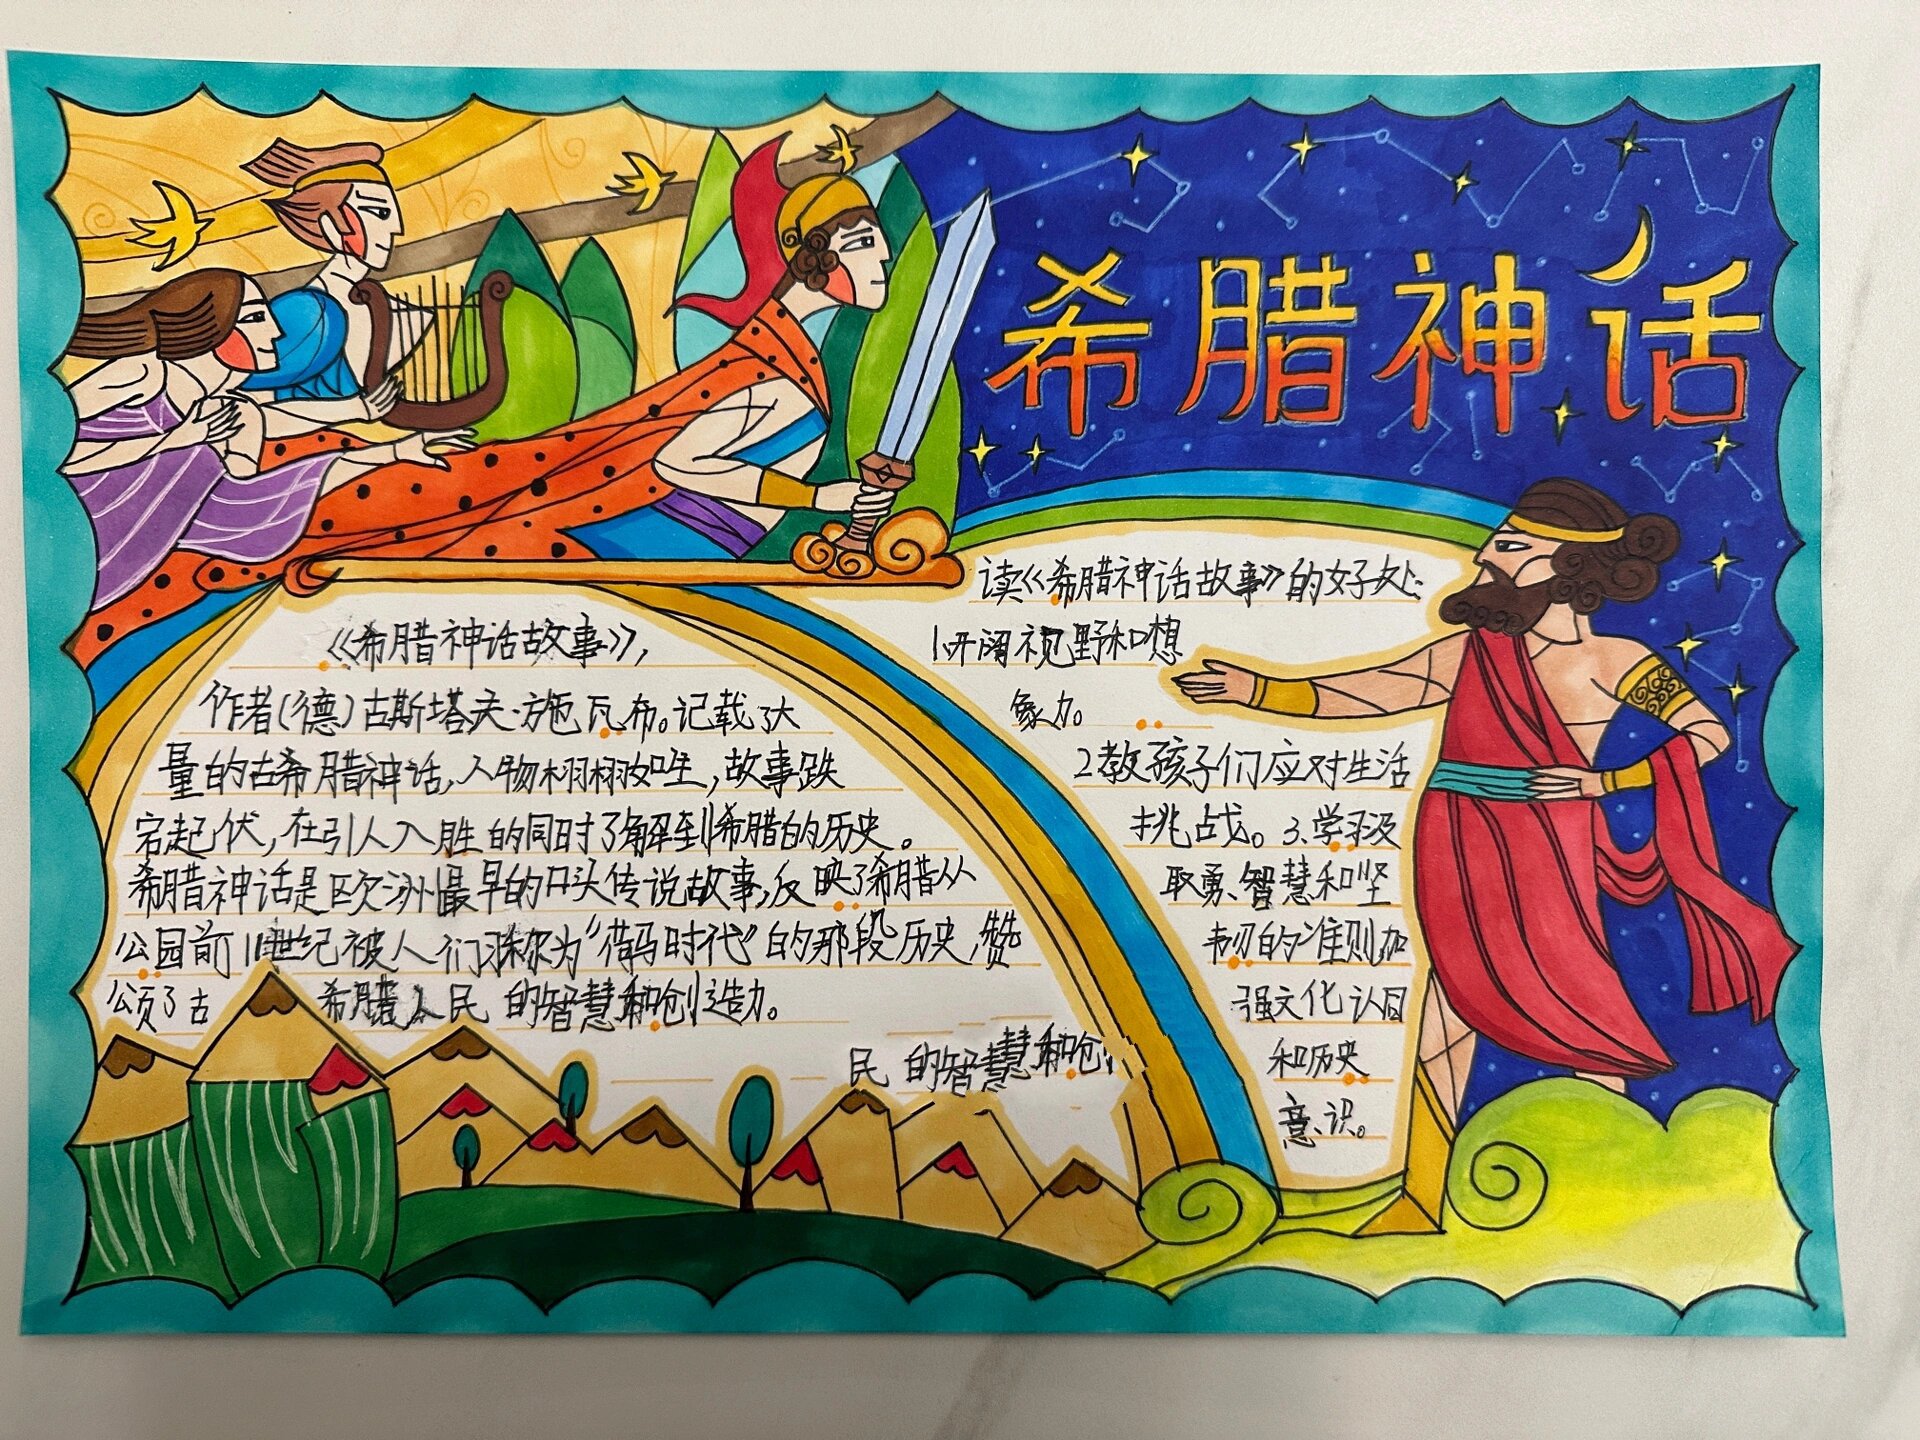 希腊神话
《希腊神话故事》,
作者(德)古斯塔夫·施瓦布。记载了大
量的古希腊神话,人物栩栩如生,故事跌
宕起伏,在引人入胜的同时了解到希腊的历史。
希腊神话是欧洲最早的口头传说故事,反映了希腊从
公园前11世纪被人们称为“荷马时代”的那段历史,赞
颂了古 希腊人民 的智慧和创造力。
民 的智慧和创
读《希腊神话故事》的好处:
1.开阔视野和想
象力。
2教孩子们应对生活
挑战。3.学习汲
取勇、智慧和坚
韧的准则加
强文化认同
和历史
意识。